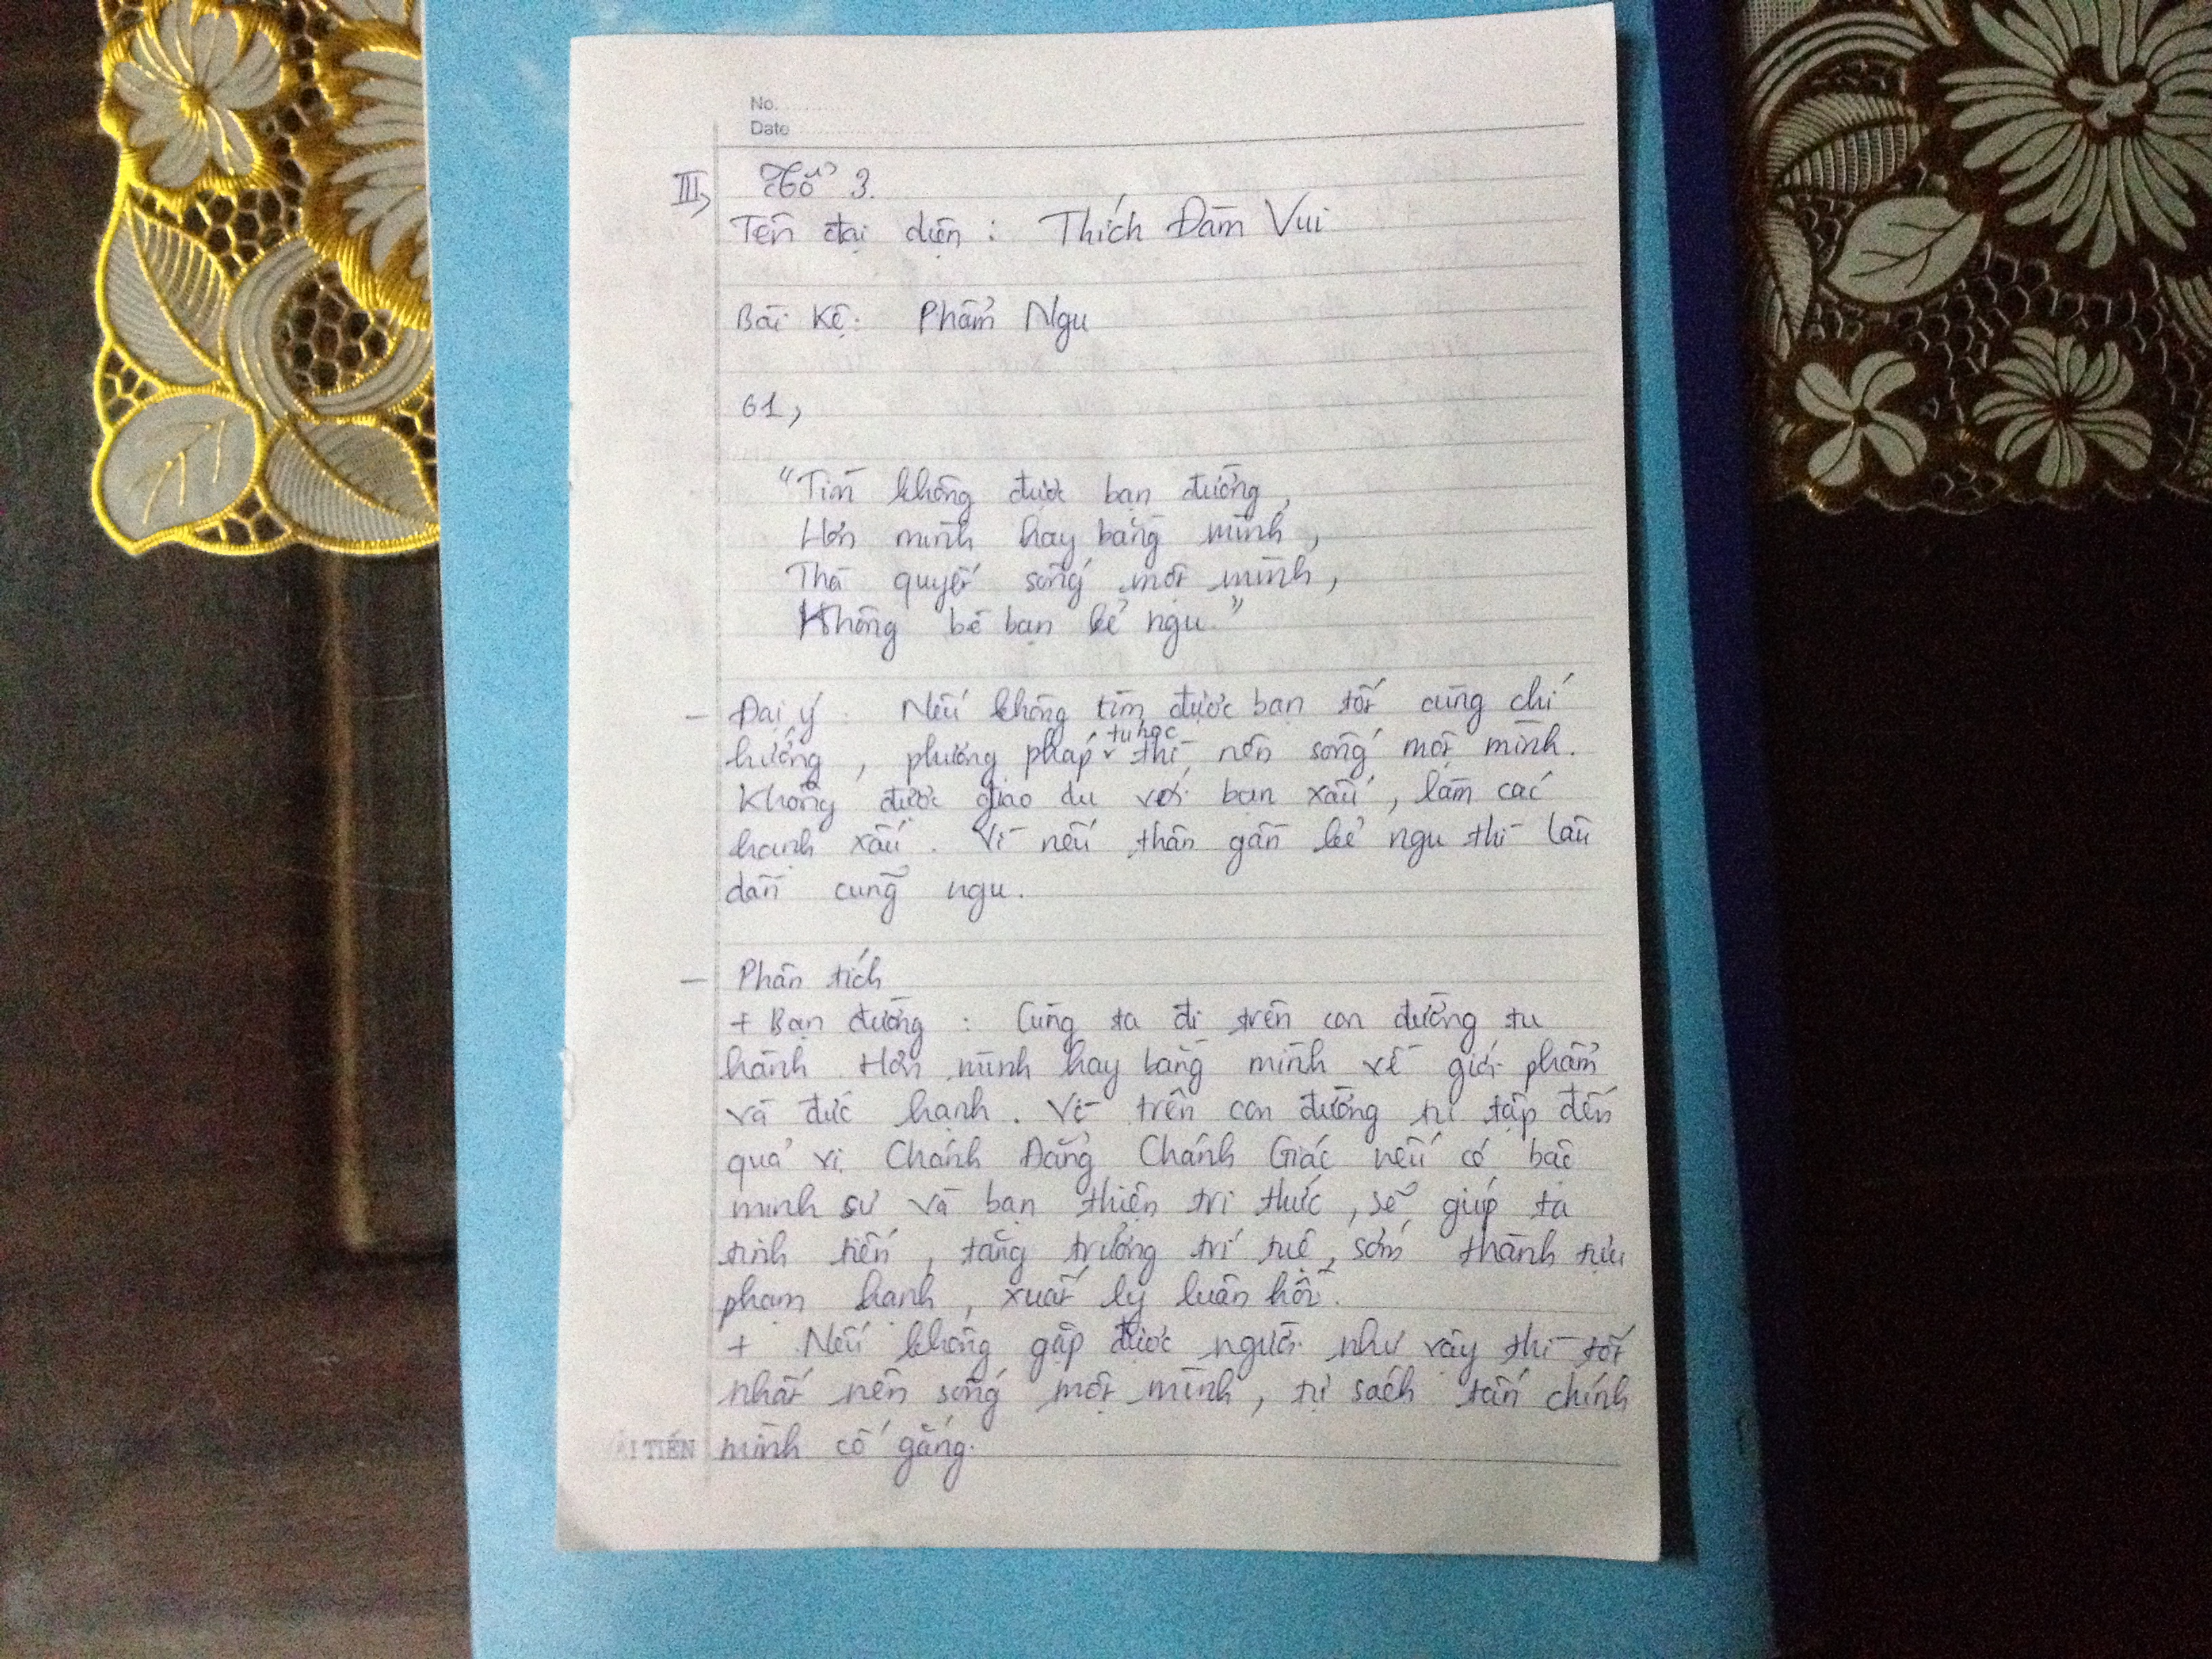 No.
Date
III, Tổ 3.
Tên đại diện : Thích Đàm Vui
Bài Kệ: Phẩm Ngu
61,
"Tìm không được bạn đường,
Hơn mình hay bằng mình,
Thà quyết sống một mình,
Không bè bạn kẻ ngu."
- Đại ý Nếu không tìm được bạn tốt cùng chí
hướng, phương pháp tu học thì nên sống một mình.
Không được giao du với bạn xấu, làm các
hạnh xấu. Vì nếu thân gần kẻ ngu thì lâu
dần cũng ngu.
- Phân tích
+ Bạn đường : Cùng ta đi trên con đường tu
hành. Hơn mình hay bằng mình về giới phẩm
và đức hạnh. Vì trên con đường tu tập đến
quả vị Chánh Đẳng Chánh Giác nếu có bậc
minh sư và bạn thiện tri thức, sẽ giúp ta
tinh tiến, tăng trưởng trí tuệ, sớm thành tựu
phạm hạnh, xuất ly luân hồi.
+ Nếu không gặp được người như vậy thì tốt
nhất nên sống một mình, tự sách tấn chính
mình cố gắng.
ẢI TIẾN